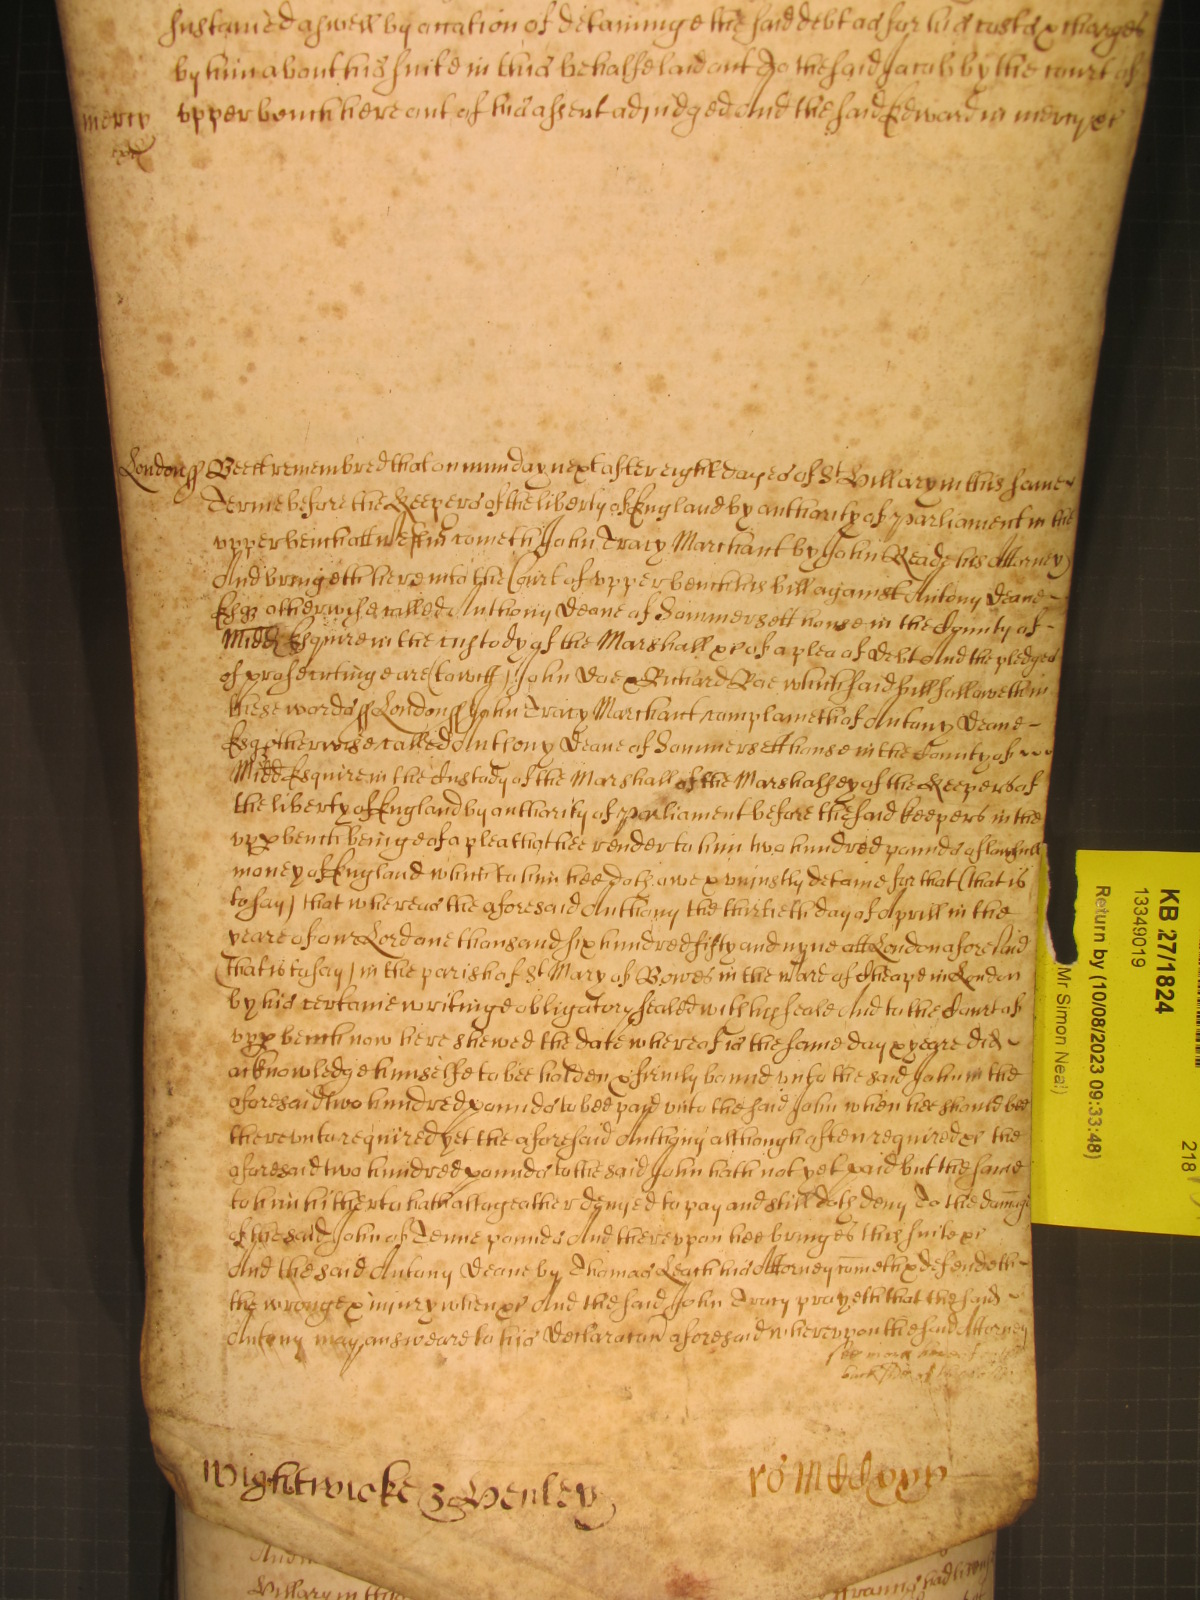 sustained aswell by occation of detaininge the said debt as for his costs & charges
by him about his suite in this behalfe laid out To the said Jacob by the court of
mercy
upper bench here out of his assent adjudged And the said Edward in mercy &c
London ss Bee it remembred that on munday next after eight dayes of St Hillary in this same
Terme before the Keepers of the liberty of England by authority of Parliament in the
upper bench att Westm cometh John Tracy Marchant by John Reade his Attorney
And bringeth here into the Court of upper bench his bill against Antony Deane
Esqr otherwise called Anthony Deane of Sommersett house in the County of
Midd Esquire in the custody of the Marshall &c of a plea of debt And the pledges
of prosecutinge are (to witt) John Doe & Richard Roe which said bill followeth in
these words ss London ss John Tracy Marchant complaineth of Antony Deane
Esqr otherwise called Anthony Deane of Sommersett house in the County of
Midd Esquire in the Custody of the Marshall of the Marshalsey of the Keepers of
the liberty of England by authority of Parliament before the said keepers in the
upp bench beinge of a plea that hee render to him two hundred pounds of lawfull
money of England which to him hee doth owe & unjustly detaine for that (that is
to say) that whereas the aforesaid Anthony the thirtieth day of Aprill in the
yeare of our Lord one thousand six hundred fifty and nyne att London aforesaid
(that is to say) in the parish of St Mary of Bowes in the ward of Cheape in London
by his certaine writinge obligatory sealed with his seale And to the Court of
upp bench now here shewed the date whereof is the same day & yeare did
acknowledge himselfe to bee holden & firmly bound unto the said John in the
aforesaid two hundred pounds to bee paid unto the said John when hee should bee
thereunto required yet the aforesaid Anthony although often required &c the
aforesaid two hundred pounds to the said John hath not yet paid but the same
to him hitherto hath altogeather denyed to pay and still doth deny To the damage
of the said John of Tenne pounds And thereupon hee bringes this suite &c
And the said Antony Deane by Thomas Leach his Attorney cometh & defendeth
the wronge & injury when &c And the said John Tracy prayeth that the said
Antony may answeare to his Declaracon aforesaid whereupon the said Attorney
See more
back side of
Wightwicke & Henley
KB 27/1824
13349019
Return by (10/08/2023 09:33:48)
Mr Simon Neal)
218
And
Hillary in this